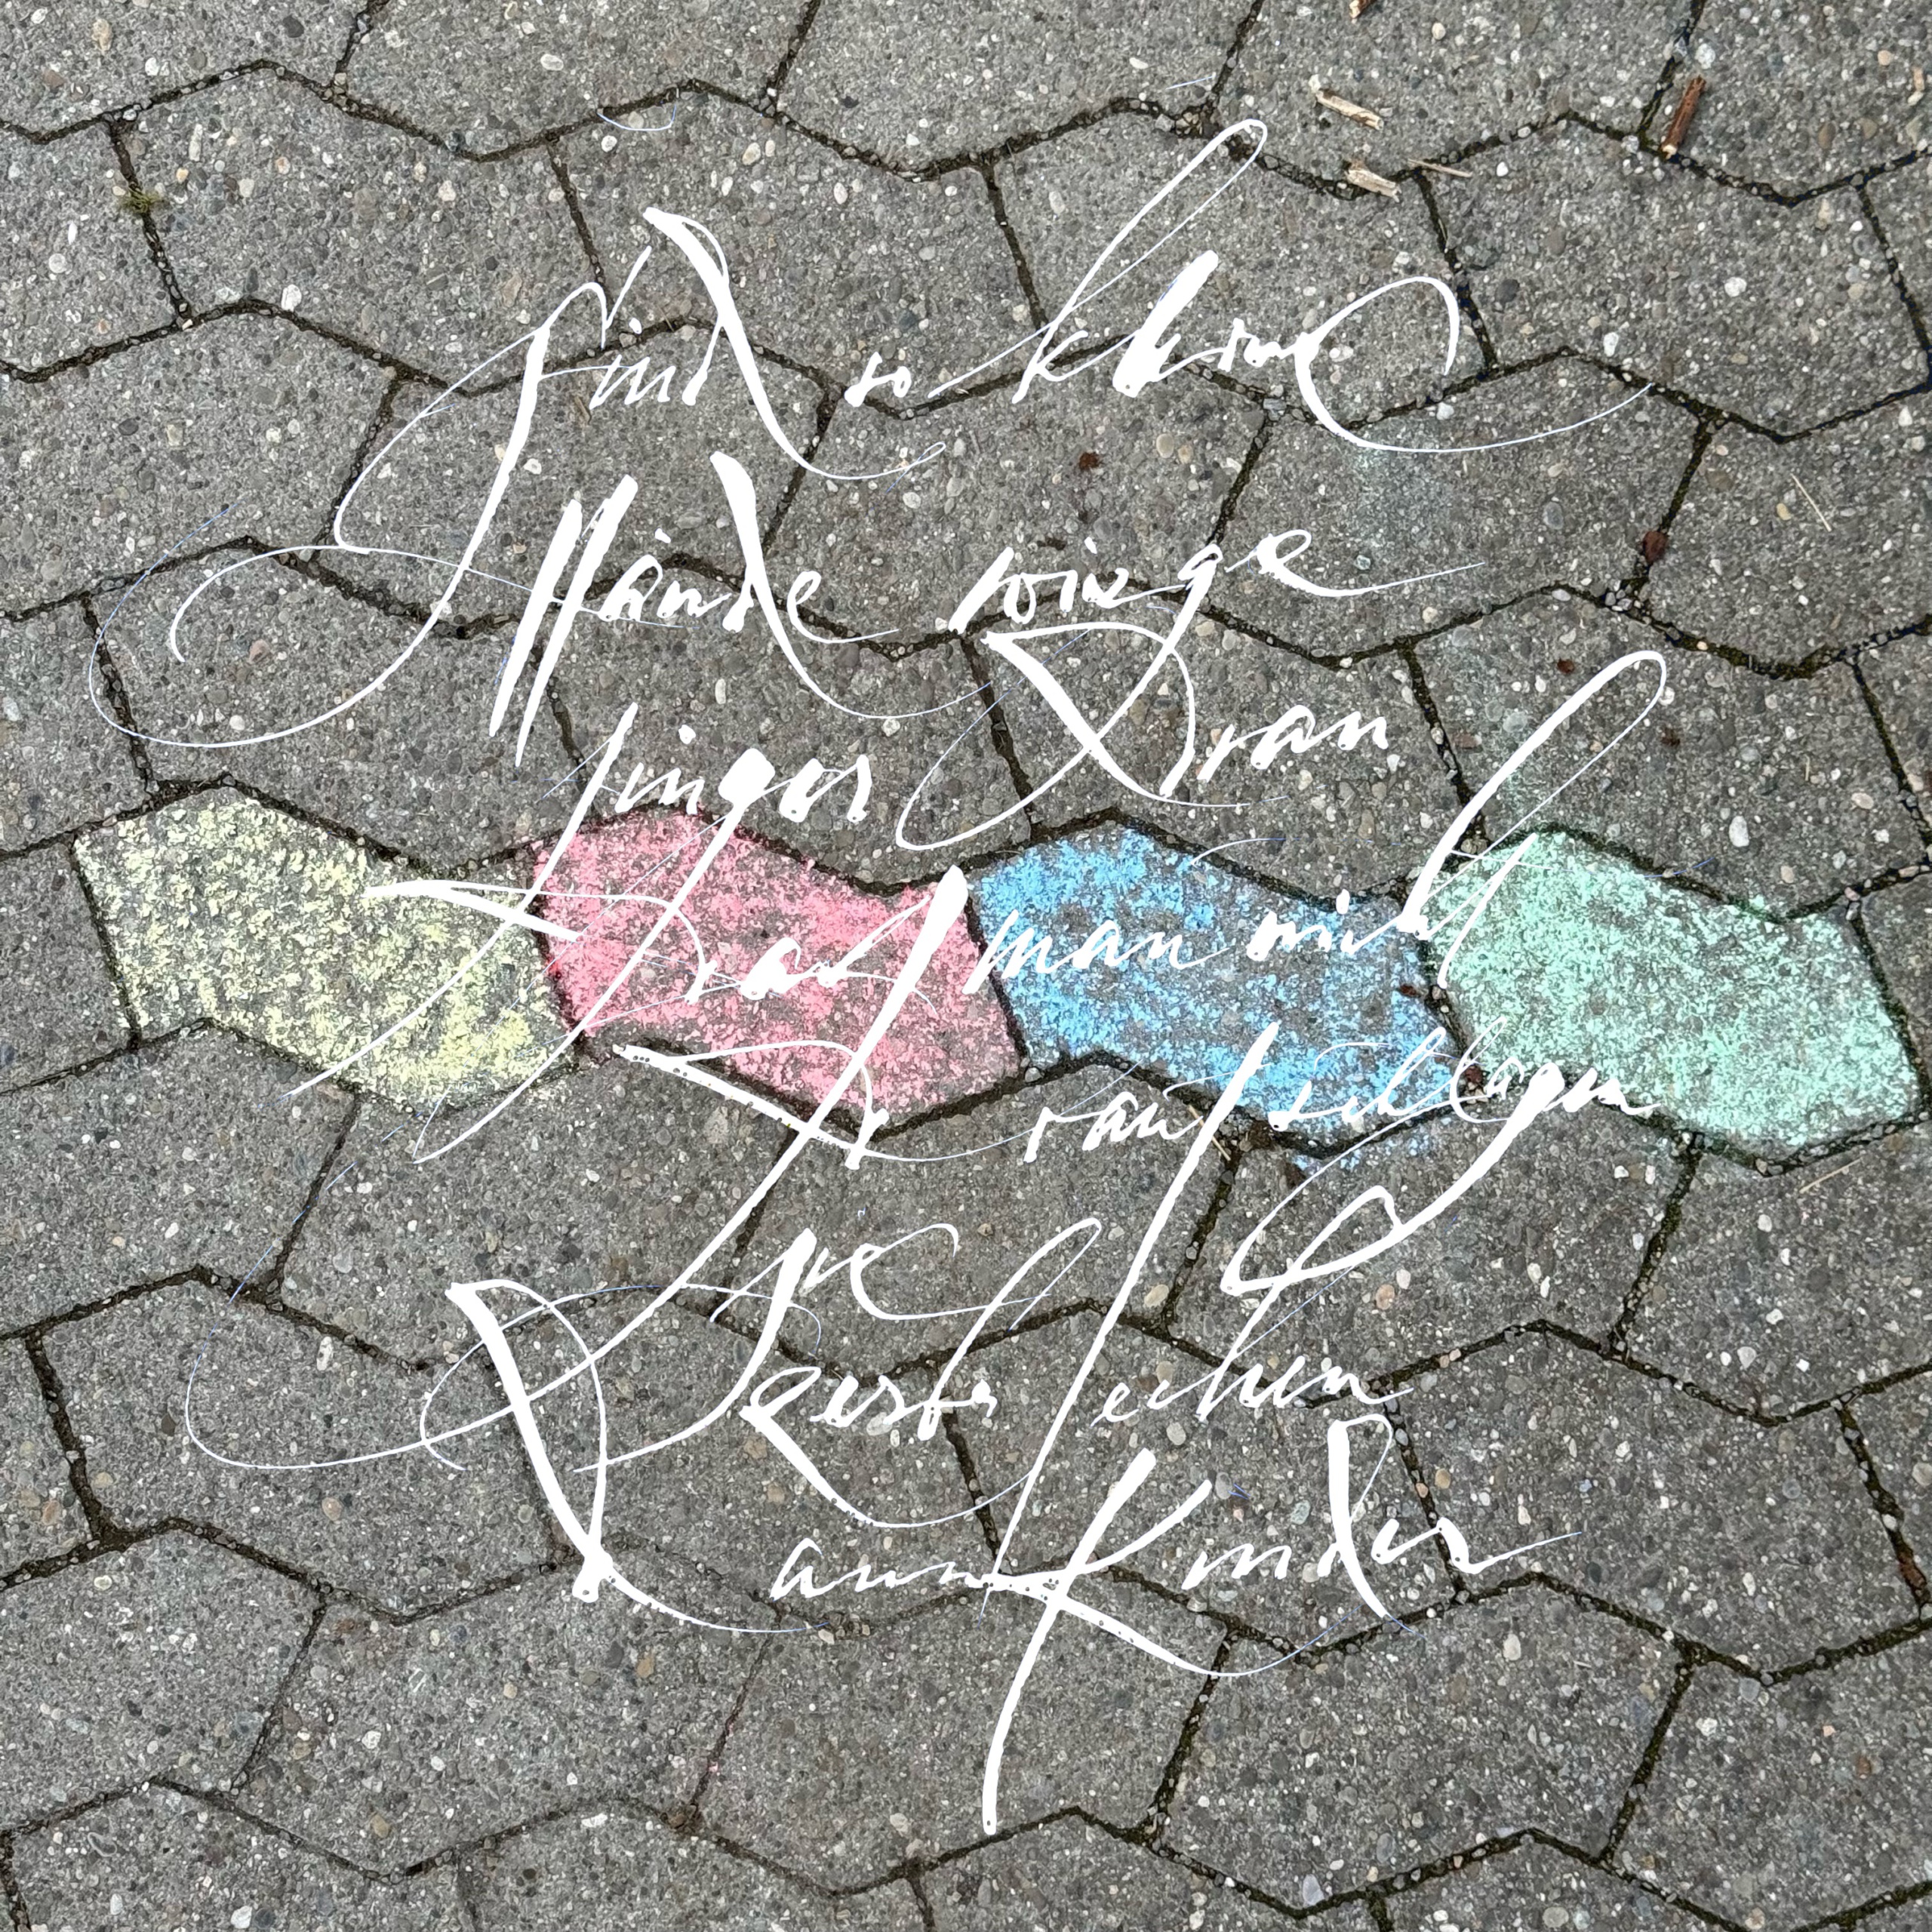 Sind so kleine
Hände winzge
Finger Dran
Darf man nich
Drauf schlagen
die
zerbrechen
Dann Kinder